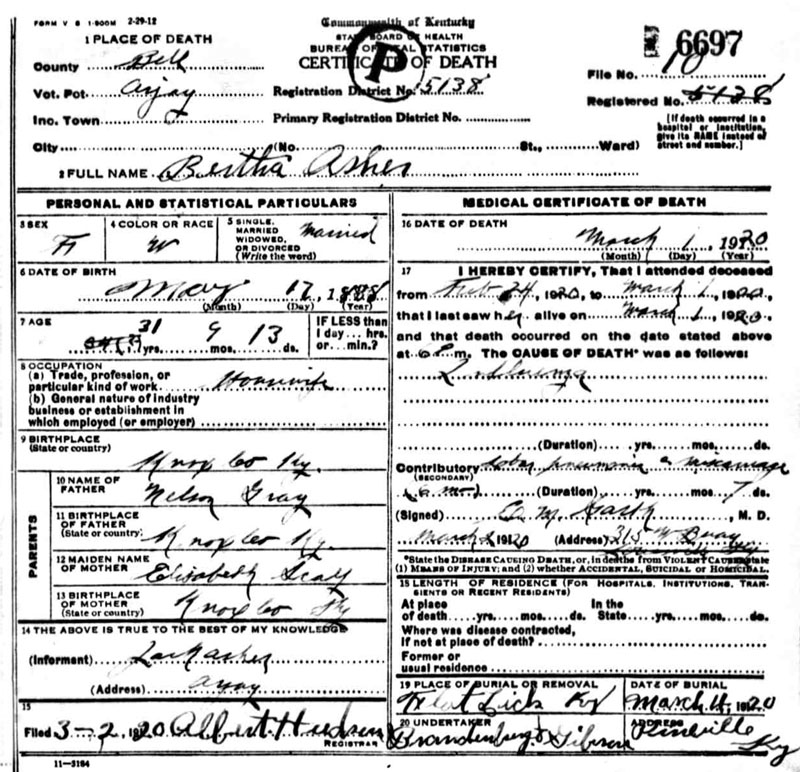 FORM V S 1-900M 2-29-12
Commonwealth of Kentucky
STATE BOARD OF HEALTH
BUREAU OF VITAL STATISTICS
CERTIFICATE OF DEATH
P
6697
1 PLACE OF DEATH
County Bell
Vot. Pct Arjay
Inc. Town
Registration District No. 5138
Primary Registration District No.
File No. 10
Registered No. 5138
[If death occurred in a hospital or institution, give its NAME instead of street and number.]
City (No. St., Ward)
2 FULL NAME Bertha Asher
PERSONAL AND STATISTICAL PARTICULARS
3 SEX F
4 COLOR OR RACE W
5 SINGLE, MARRIED WIDOWED, OR DIVORCED (Write the word) Married
6 DATE OF BIRTH
May 17, 1888
(Month) (Day) (Year)
7 AGE 31 yrs. 9 mos. 13 ds.
IF LESS than 1 day... hrs. or... min.?
8 OCCUPATION
(a) Trade, profession, or particular kind of work Housewife
(b) General nature of industry business or establishment in which employed (or employer)
9 BIRTHPLACE
(State or country)
Knox Co Ky.
PARENTS
10 NAME OF FATHER Nelson Gray
11 BIRTHPLACE OF FATHER (State or country) Knox Co Ky.
12 MAIDEN NAME OF MOTHER Elisabeth Scalf
13 BIRTHPLACE OF MOTHER (State or country) Knox Co Ky
14 THE ABOVE IS TRUE TO THE BEST OF MY KNOWLEDGE
(Informant) Asher
(Address) Arjay
15
Filed 3-2, 1920 Albert Hudson
REGISTRAR
11-3184
MEDICAL CERTIFICATE OF DEATH
16 DATE OF DEATH
March 1, 1920
(Month) (Day) (Year)
17 I HEREBY CERTIFY, That I attended deceased
from Feb 24, 1920, to March 1, 1920,
that I last saw her alive on March 1, 1920,
and that death occurred on the date stated above
at 6 m. The CAUSE OF DEATH* was as follows:
Influenza
(Duration) yrs. mos. ds.
Contributory lobar pneumonia & miscarriage
(SECONDARY)
(6 mo) (Duration) yrs. mos. 7 ds.
(Signed) O. M. , M. D.
March 2 1920 (Address) 315 W
*State the DISEASE CAUSING DEATH, or, in deaths from VIOLENT CAUSES state
(1) MEANS OF INJURY; and (2) whether ACCIDENTAL, SUICIDAL or HOMICIDAL.
18 LENGTH OF RESIDENCE (FOR HOSPITALS, INSTITUTIONS, TRANSIENTS OR RECENT RESIDENTS)
At place of death yrs. mos. ds. In the State yrs. mos. ds.
Where was disease contracted, If not at place of death?
Former or usual residence
19 PLACE OF BURIAL OR REMOVAL Flat Lick Ky
DATE OF BURIAL March 4, 1920
20 UNDERTAKER Brandenburg & Gibson
ADDRESS Pineville Ky